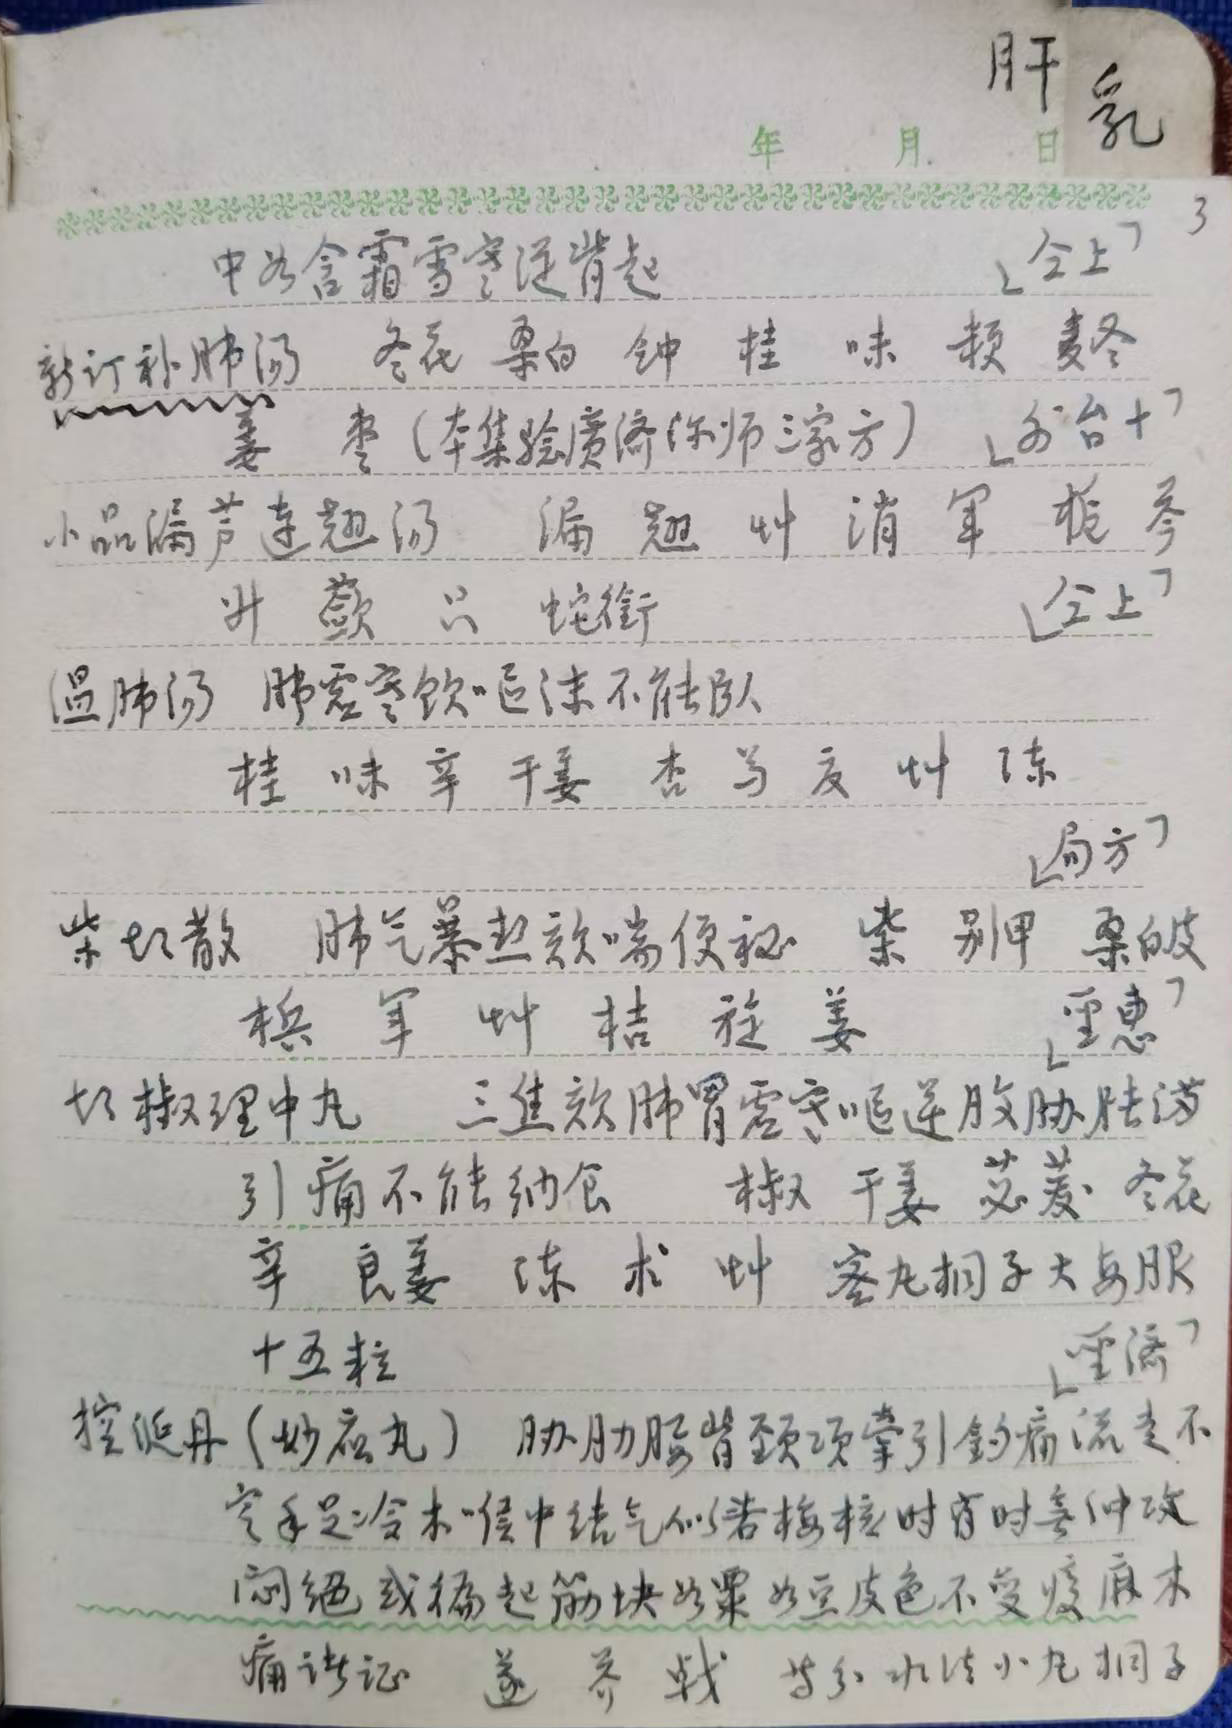 肝
乳
年 月 日
3
中如含霜雪寒逆背起 「仝上」
新订补肺汤 冬花 桑白 钟 桂 味 粳 麦冬
姜 枣（本集验广济深师三家方）「外台十」
小品漏芦连翘汤 漏 翘 艸 消 军 栀 芩
升 蘞 只 蛇衔 「仝上」
温肺汤 肺虚寒饮呕沫不能卧
桂 味 辛 干姜 杏 芍 夏 艸 陈
「局方」
柴胡散 肺气暴热欬喘便秘 柴 别甲 桑白皮
槟 军 艸 桔 旋 姜 「圣惠」
胡椒理中丸 三焦欬肺胃虚寒呕逆腹胁胀满
引痛不能纳食 椒 干姜 荜茇 冬花
辛 良姜 陈 术 艸 密丸桐子大每服
十五粒 「圣济」
控涎丹（妙应丸） 胁肋腰背颈项牵引钓痛流走不
定手足冷木喉中结气似若梅核时有时无冲攻
闷绝或徧起筋块如粟如豆皮色不变痠麻木
痛诸证 遂 芥 戟 等分水法小丸桐子